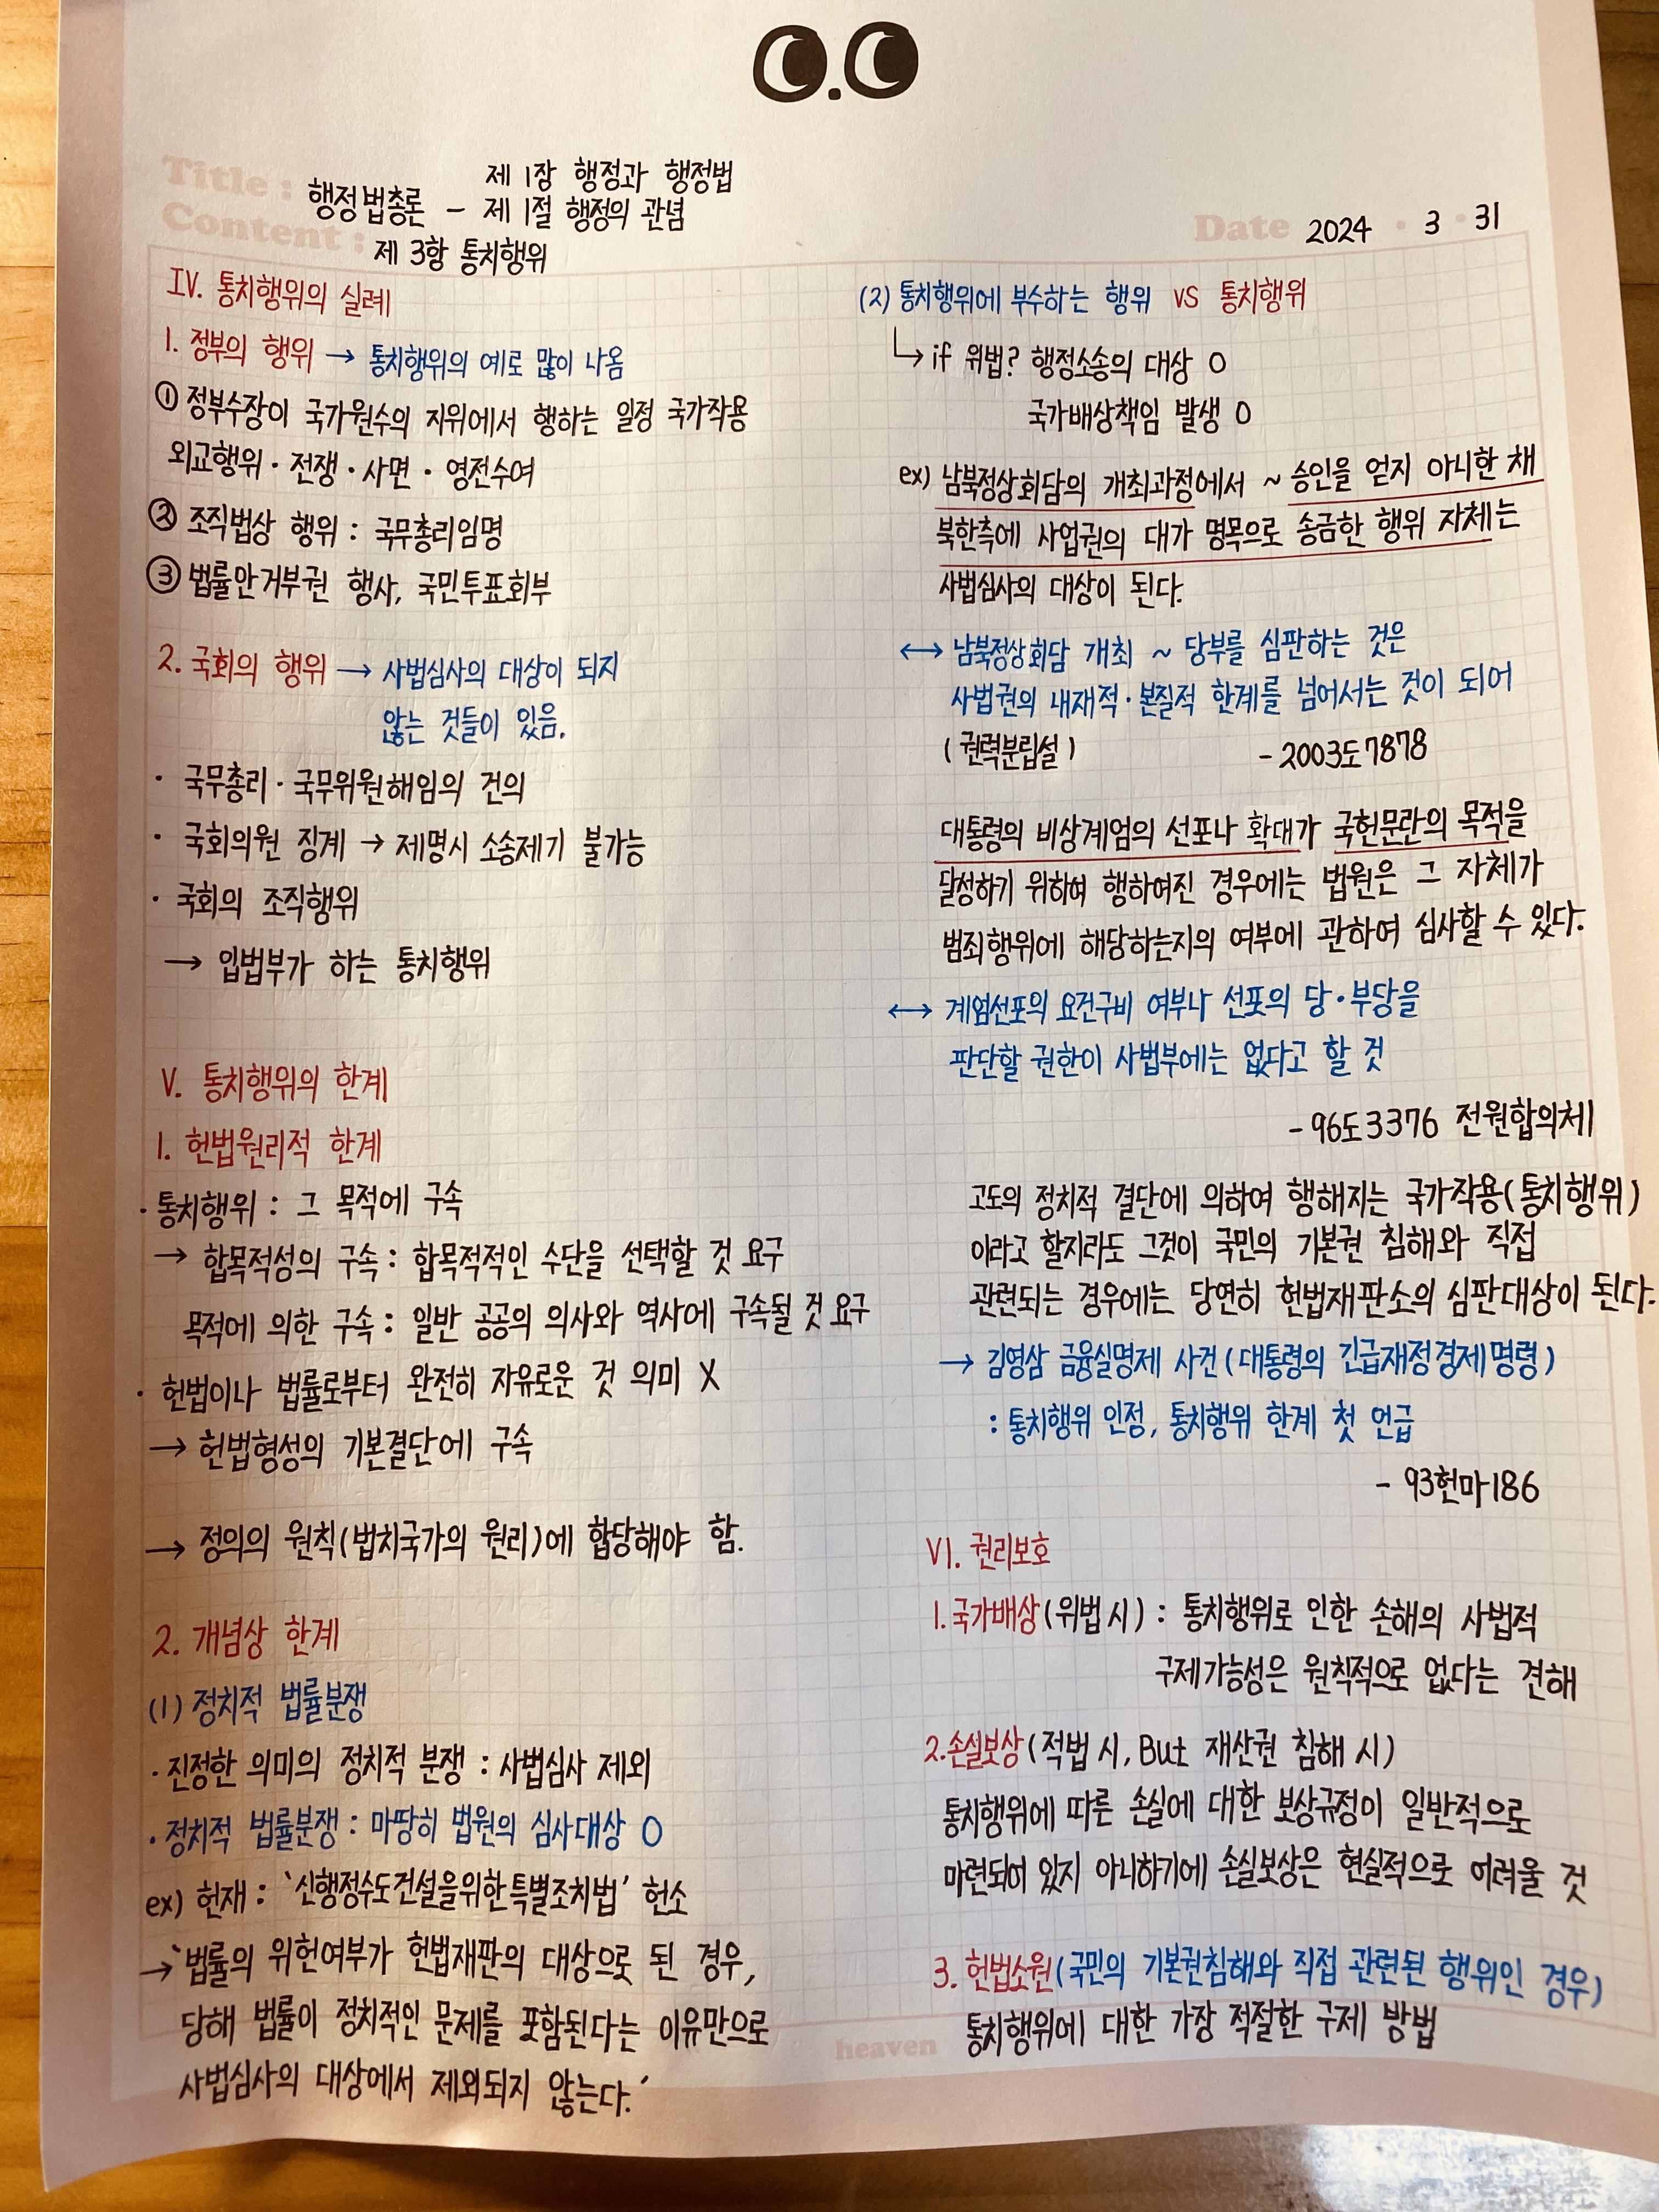 Title :
제 1장 행정과 행정법
행정법총론 - 제 1절 행정의 관념
Content :
제 3항 통치행위
Date 2024 · 3 · 31
IV. 통치행위의 실례
1. 정부의 행위 → 통치행위의 예로 많이 나옴
① 정부수장이 국가원수의 지위에서 행하는 일정 국가작용
외교행위 · 전쟁 · 사면 · 영전수여
② 조직법상 행위 : 국무총리임명
③ 법률안거부권 행사, 국민투표회부
2. 국회의 행위 → 사법심사의 대상이 되지
않는 것들이 있음.
· 국무총리 · 국무위원해임의 건의
· 국회의원 징계 → 제명시 소송제기 불가능
· 국회의 조직행위
→ 입법부가 하는 통치행위
V. 통치행위의 한계
1. 헌법원리적 한계
· 통치행위 : 그 목적에 구속
→ 합목적성의 구속 : 합목적적인 수단을 선택할 것 요구
목적에 의한 구속 : 일반 공공의 의사와 역사에 구속될 것 요구
· 헌법이나 법률로부터 완전히 자유로운 것 의미 X
→ 헌법형성의 기본결단에 구속
→ 정의의 원칙(법치국가의 원리)에 합당해야 함.
2. 개념상 한계
(1) 정치적 법률분쟁
· 진정한 의미의 정치적 분쟁 : 사법심사 제외
· 정치적 법률분쟁 : 마땅히 법원의 심사대상 O
ex) 헌재 : '신행정수도건설을위한특별조치법' 헌소
→ '법률의 위헌여부가 헌법재판의 대상으로 된 경우,
당해 법률이 정치적인 문제를 포함된다는 이유만으로
사법심사의 대상에서 제외되지 않는다.'
(2) 통치행위에 부수하는 행위 VS 통치행위
↳ if 위법? 행정소송의 대상 O
국가배상책임 발생 O
ex) 남북정상회담의 개최과정에서 ~ 승인을 얻지 아니한 채
북한측에 사업권의 대가 명목으로 송금한 행위 자체는
사법심사의 대상이 된다.
↔ 남북정상회담 개최 ~ 당부를 심판하는 것은
사법권의 내재적 · 본질적 한계를 넘어서는 것이 되어
(권력분립설) - 2003도7878
대통령의 비상계엄의 선포나 확대가 국헌문란의 목적을
달성하기 위하여 행하여진 경우에는 법원은 그 자체가
범죄행위에 해당하는지의 여부에 관하여 심사할 수 있다.
↔ 계엄선포의 요건구비 여부나 선포의 당 · 부당을
판단할 권한이 사법부에는 없다고 할 것
- 96도3376 전원합의체
고도의 정치적 결단에 의하여 행해지는 국가작용(통치행위)
이라고 할지라도 그것이 국민의 기본권 침해와 직접
관련되는 경우에는 당연히 헌법재판소의 심판대상이 된다.
→ 김영삼 금융실명제 사건(대통령의 긴급재정경제명령)
: 통치행위 인정, 통치행위 한계 첫 언급
- 93헌마186
VI. 권리보호
1. 국가배상(위법 시) : 통치행위로 인한 손해의 사법적
구제가능성은 원칙적으로 없다는 견해
2. 손실보상(적법 시, But 재산권 침해 시)
통치행위에 따른 손실에 대한 보상규정이 일반적으로
마련되어 있지 아니하기에 손실보상은 현실적으로 어려울 것
3. 헌법소원(국민의 기본권침해와 직접 관련된 행위인 경우)
통치행위에 대한 가장 적절한 구제 방법
heaven